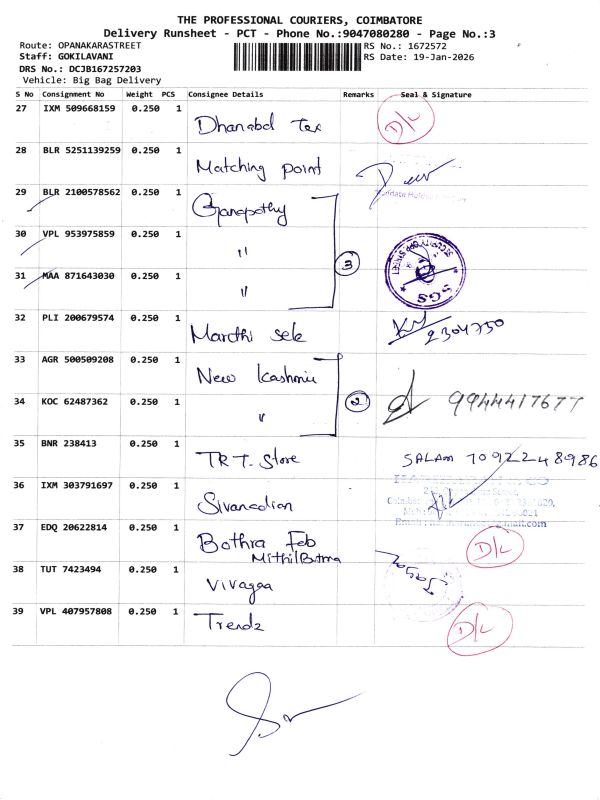 THE PROFESSIONAL COURIERS, COIMBATORE
Delivery Runsheet - PCT - Phone No.:9047080280 - Page No.:3
Route: OPANAKARASTREET
Staff: GOKILAVANI
DRS No.: DCJB167257203
Vehicle: Big Bag Delivery
RS No.: 1672572
RS Date: 19-Jan-2026
S No Consignment No Weight PCS Consignee Details Remarks Seal & Signature
27 IXM 509668159 0.250 1 Dhanabal Tex D/L
28 BLR 5251139259 0.250 1 Matching point
29 BLR 2100578562 0.250 1 Ganapathy
30 VPL 953975859 0.250 1 "
31 MAA 871643030 0.250 1 " 3 SGS
32 PLI 200679574 0.250 1 Marothi 2304750
33 AGR 500509208 0.250 1 New Kashmir
34 KOC 62487362 0.250 1 " 2 9944417677
35 BNR 238413 0.250 1 TRT. Store SALAM 7092248986
36 IXM 303791697 0.250 1
37 EDQ 20622814 0.250 1 Bothra Fab D/L
38 TUT 7423494 0.250 1 Vivagaa
39 VPL 407957808 0.250 1 Trendz D/L